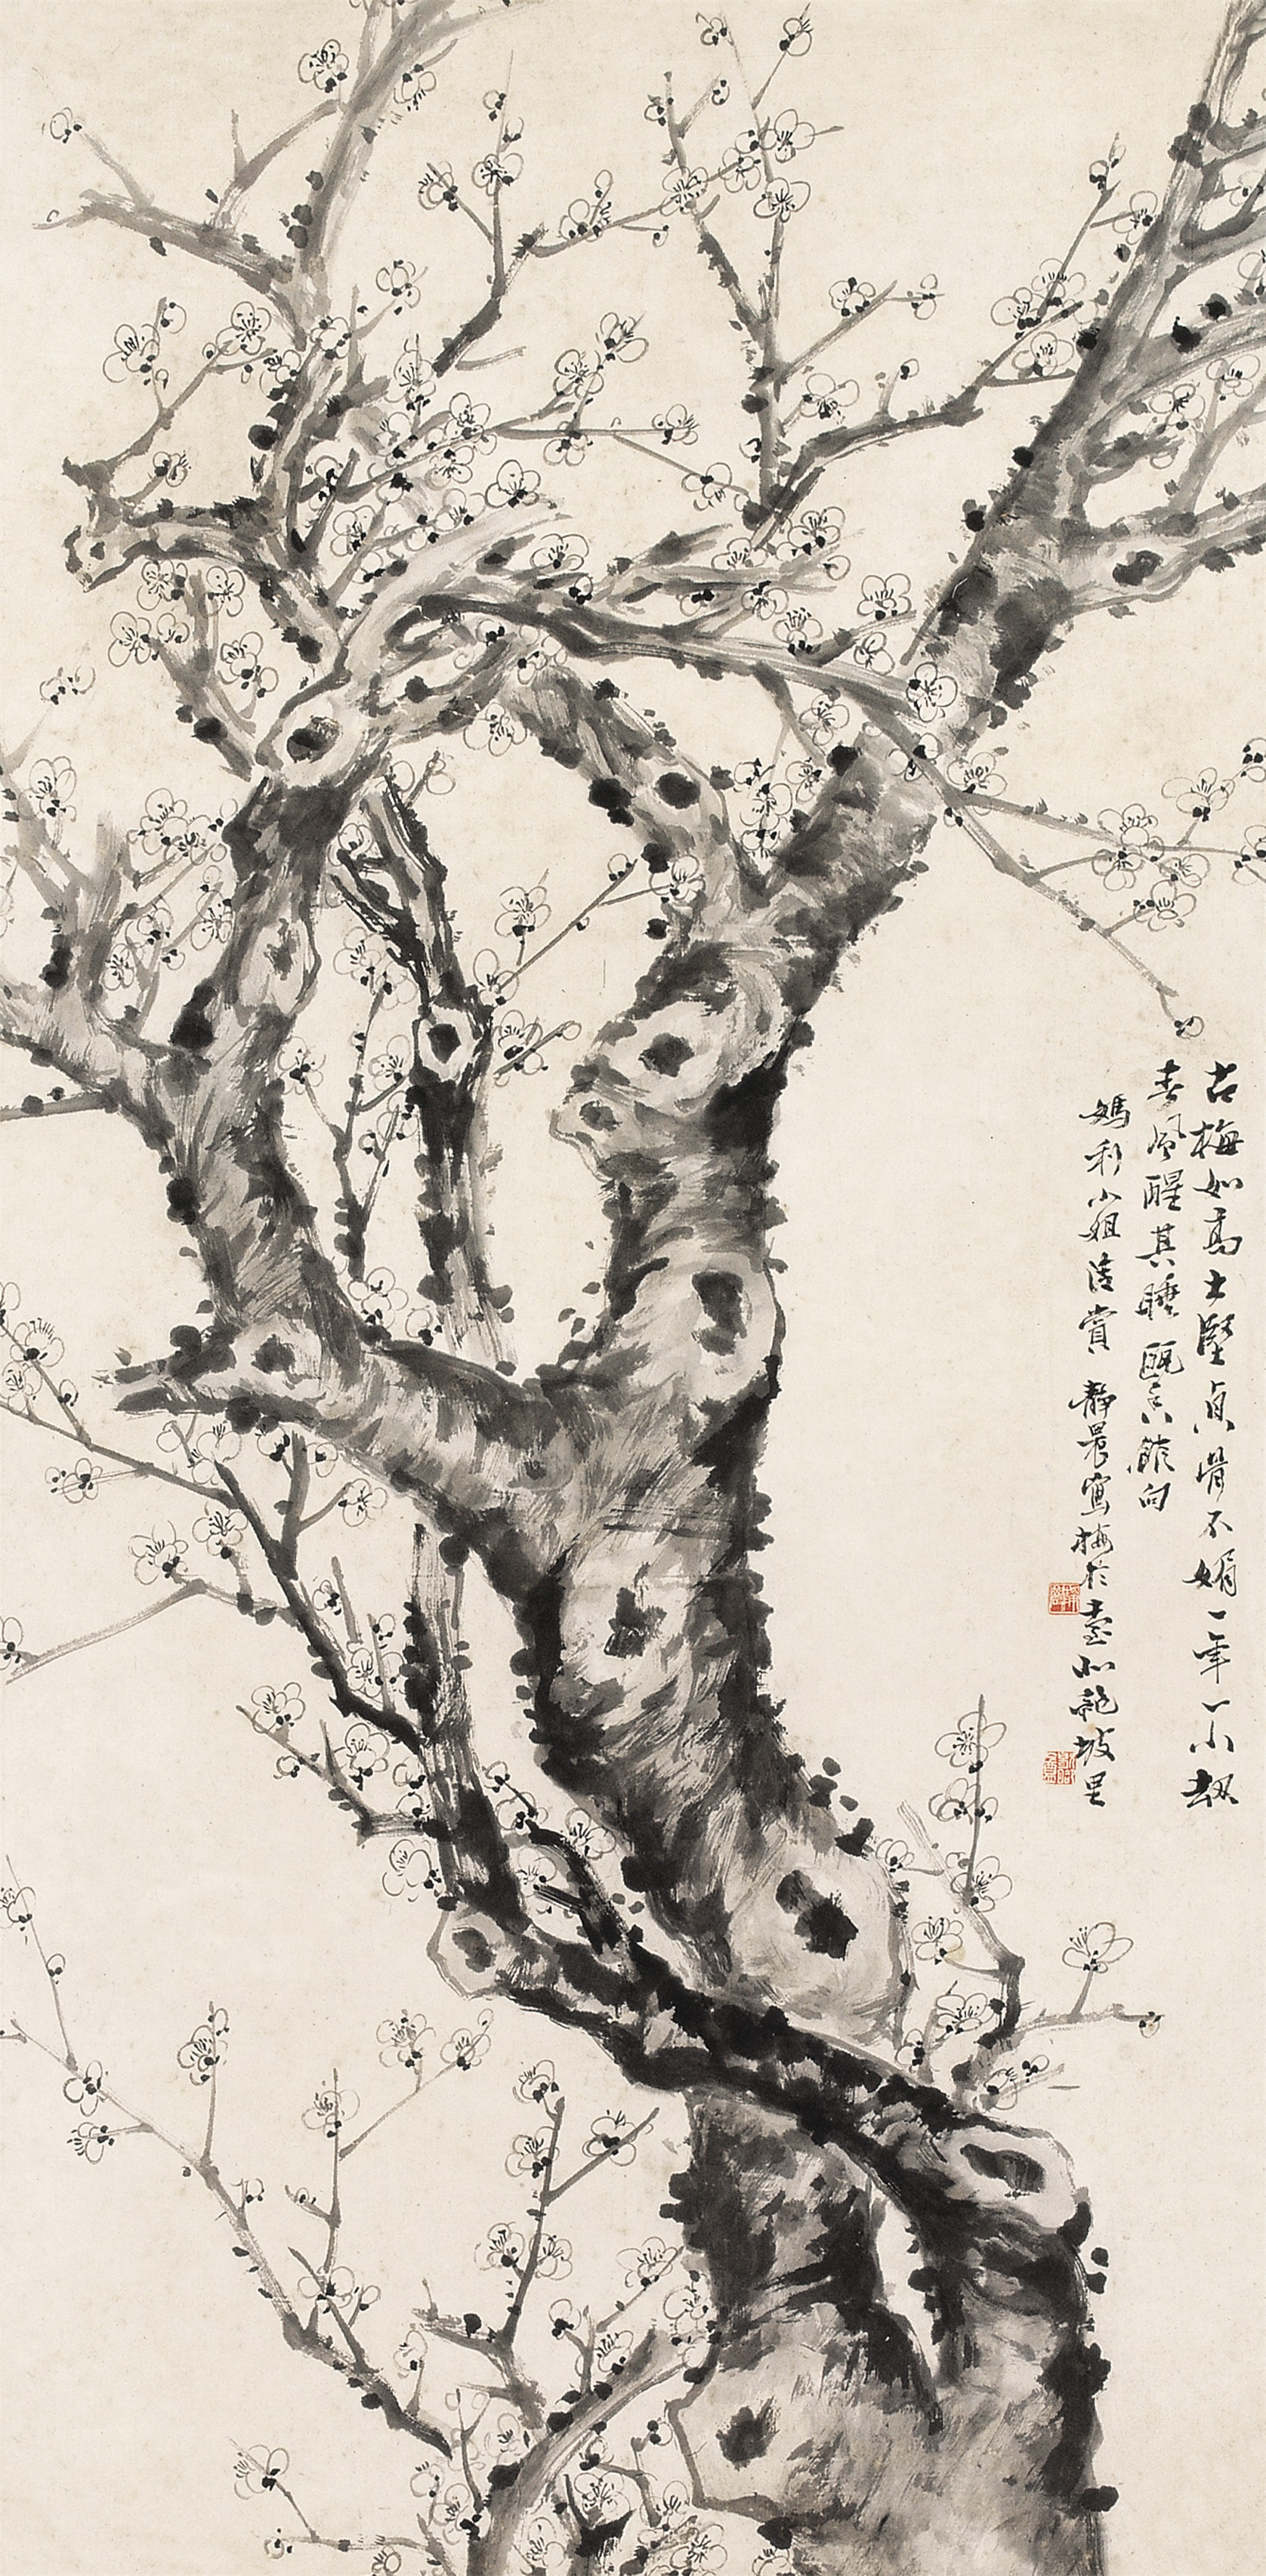 古梅如高士堅貞骨不媚一年一小劫
春風醒其睡 甌香館句
媽利小姐清賞 靜農寫梅於臺北龍坡里